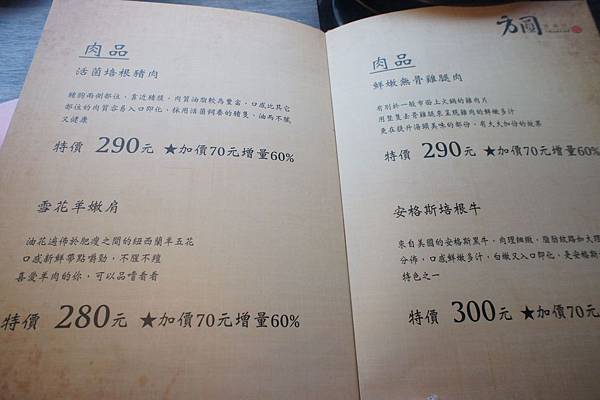 肉品
活菌培根豬肉
豬胸兩側部位,靠近豬腹,肉質油脂較為豐富,口感比其它
部位的肉質容易入口即化,採用活菌飼養的豬隻,油而不膩
又健康
特價 290元 ★加價70元增量60%
雪花羊嫩肩
油花遍佈於肥瘦之間的紐西蘭羊五花
口感新鮮帶點嚼勁,不腥不羶
喜愛羊肉的你,可以品嚐看看
特價 280元 ★加價70元增量60%
方圓
肉品
鮮嫩無骨雞腿肉
有別於一般市面上火鍋的雞肉片
用整隻去骨雞腿來呈現雞肉的鮮嫩多汁
更在提升湯頭美味的部份,有大大加份的效果
特價 290元 ★加價70元增量60%
安格斯培根牛
來自美國的安格斯黑牛,肉理細嫩,脂肪紋路如大理
分佈,口感鮮嫩多汁,白嫩又入口即化,是安格斯
特色之一
特價 300元 ★加價70元